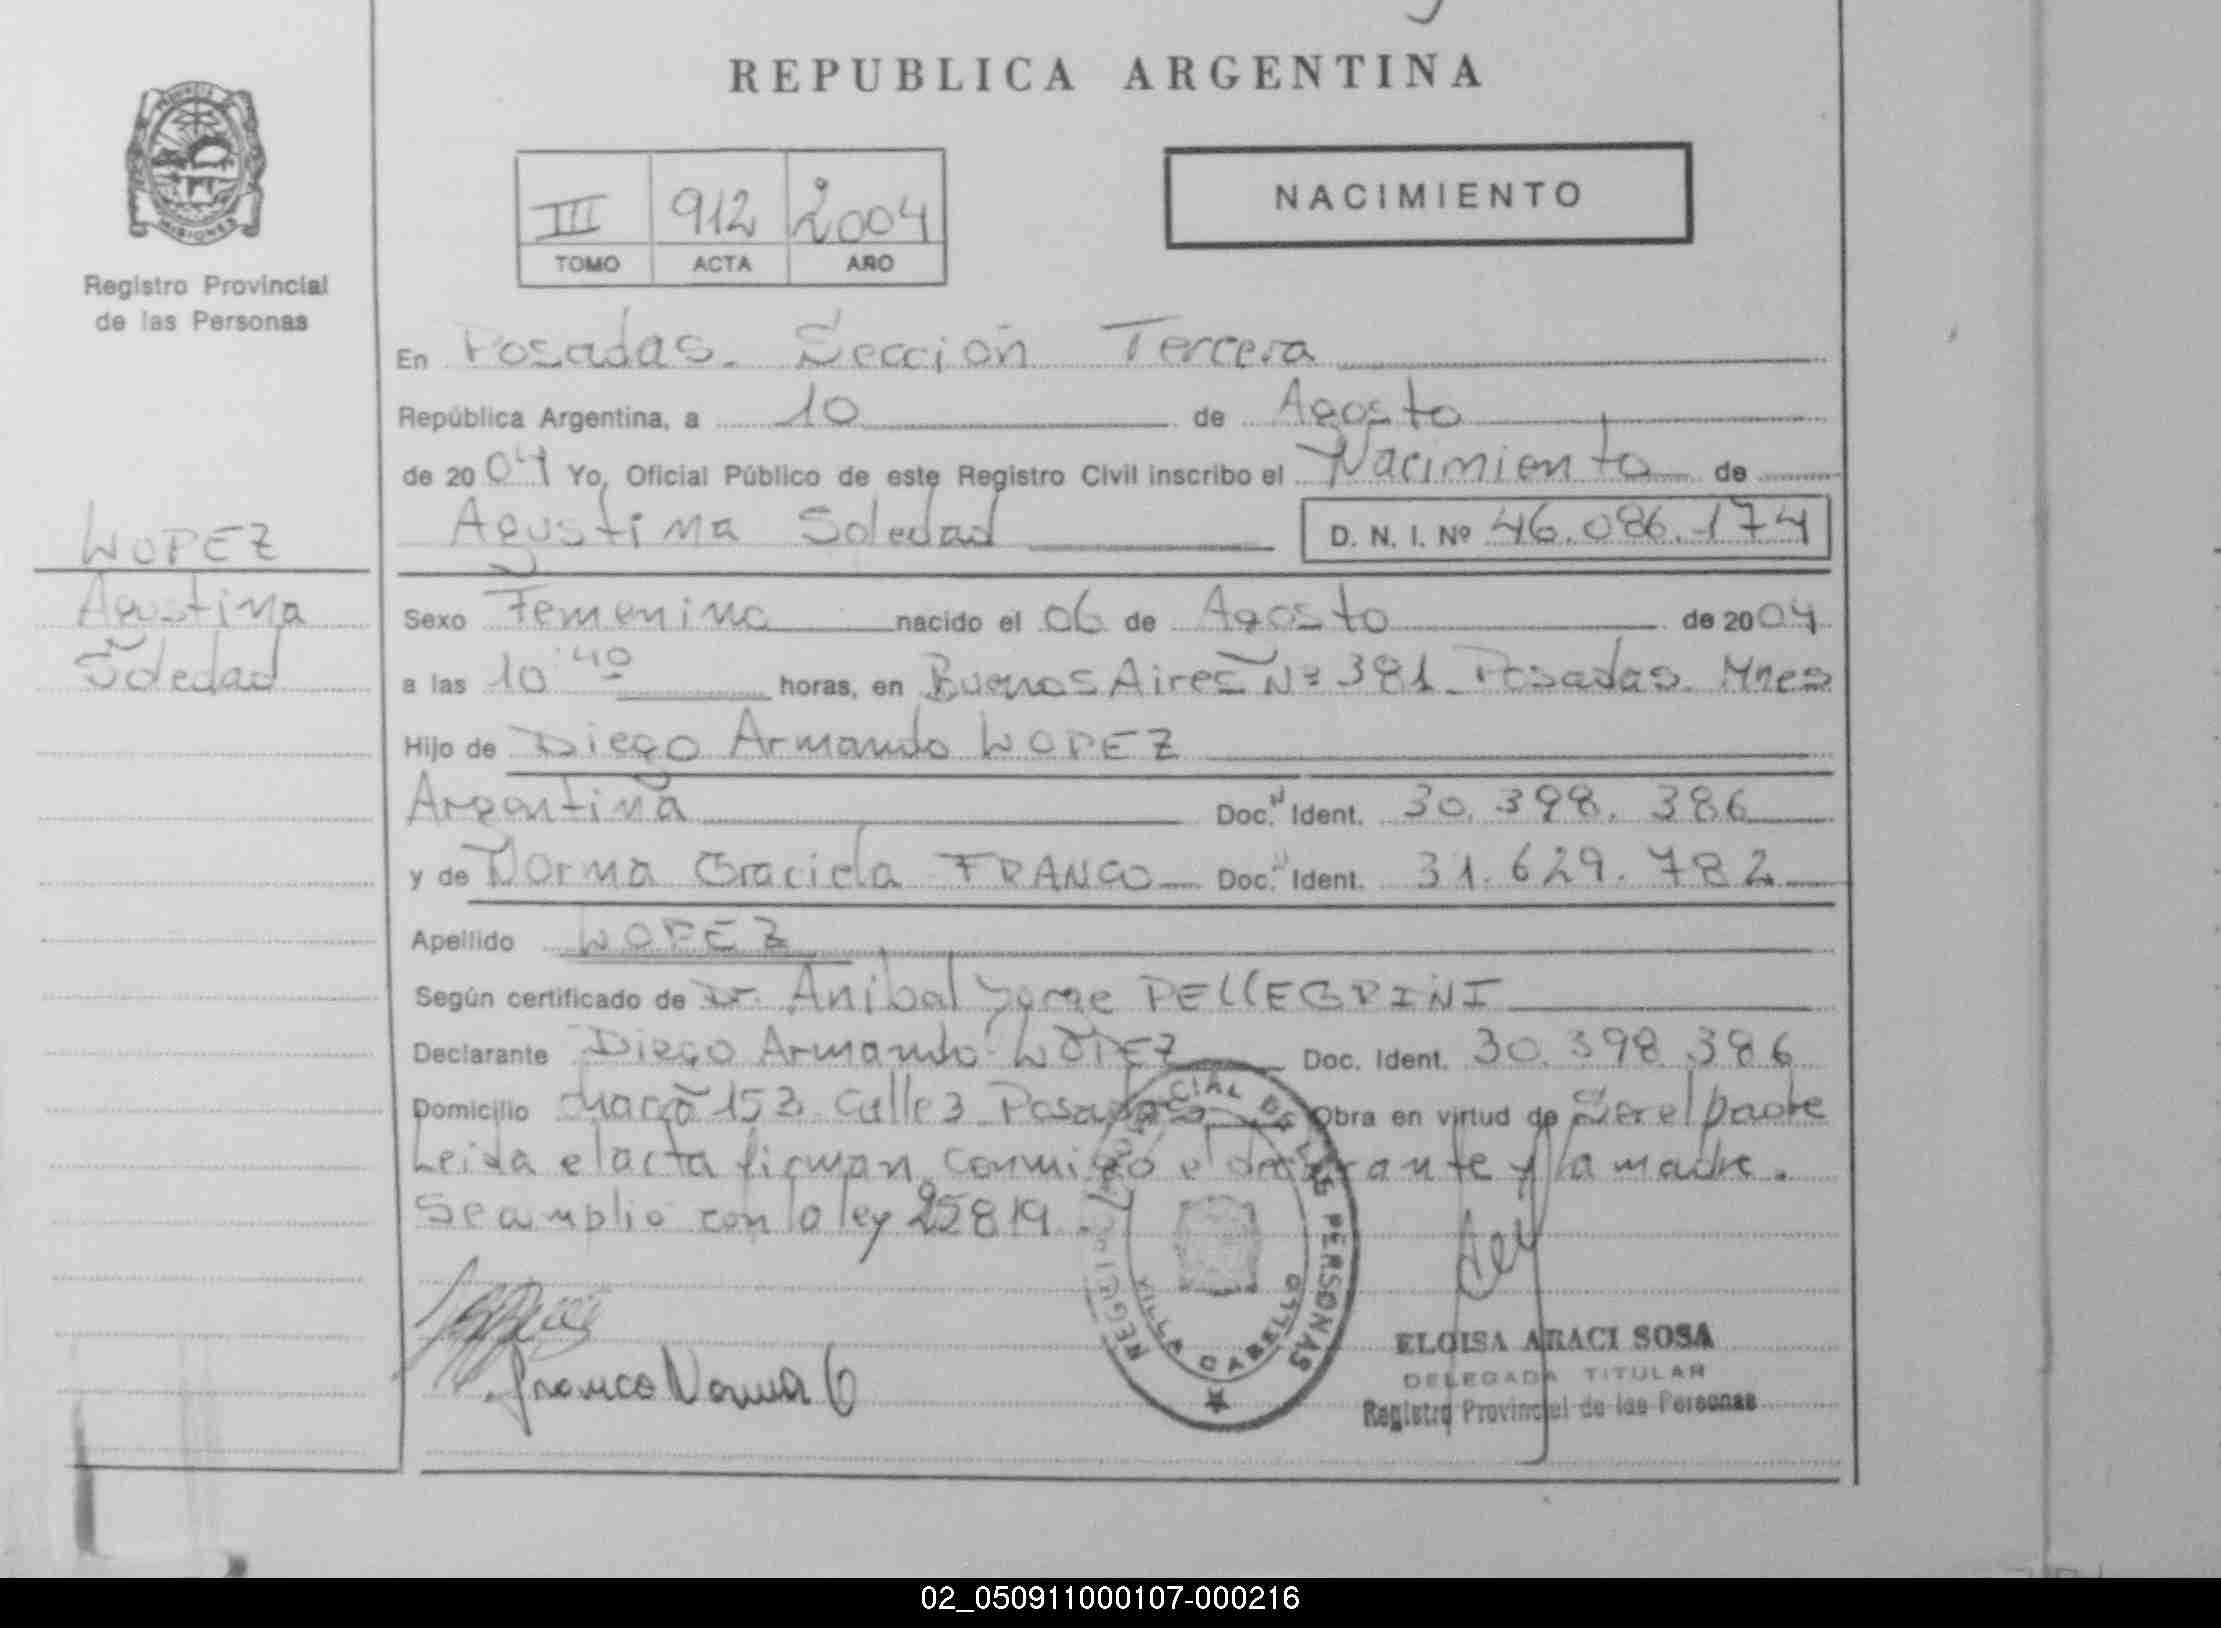 REPUBLICA ARGENTINA
PROVINCIA DE
MISIONES
Registro Provincial
de las Personas
III 912 2004
TOMO ACTA AÑO
NACIMIENTO
En Posadas. Sección Tercera
República Argentina, a 10 de Agosto
de 2004 Yo, Oficial Público de este Registro Civil inscribo el Nacimiento de
Agustina Soledad D. N. I. Nº 46.086.174
WOPEZ
Agustina
Soledad
Sexo Femenino nacido el 06 de Agosto de 2004
a las 10 40 horas, en Buenos Aires Nº 381 Posadas. Mnes
Hijo de Diego Armando WOPEZ
Argentina Doc. Ident. 30.398.386
y de Norma Graciela FRANCO Doc. Ident. 31.629.782
Apellido WOPEZ
Según certificado de Dr. Anibal Jorge PELLEGRINI
Declarante Diego Armando WOPEZ Doc. Ident. 30.398.386
Domicilio chacra 153 Calle 3 Posadas Obra en virtud de Ser el padre
Leida el acta firman conmigo el declarante y la madre.
Se amplio con la ley 25819.
REGISTRO PROVINCIAL DE LAS PERSONAS
VILLA CABELLO
Franco Norma G
ELOISA ARACI SOSA
DELEGADA TITULAR
Registro Provincial de las Personas
02_050911000107-000216